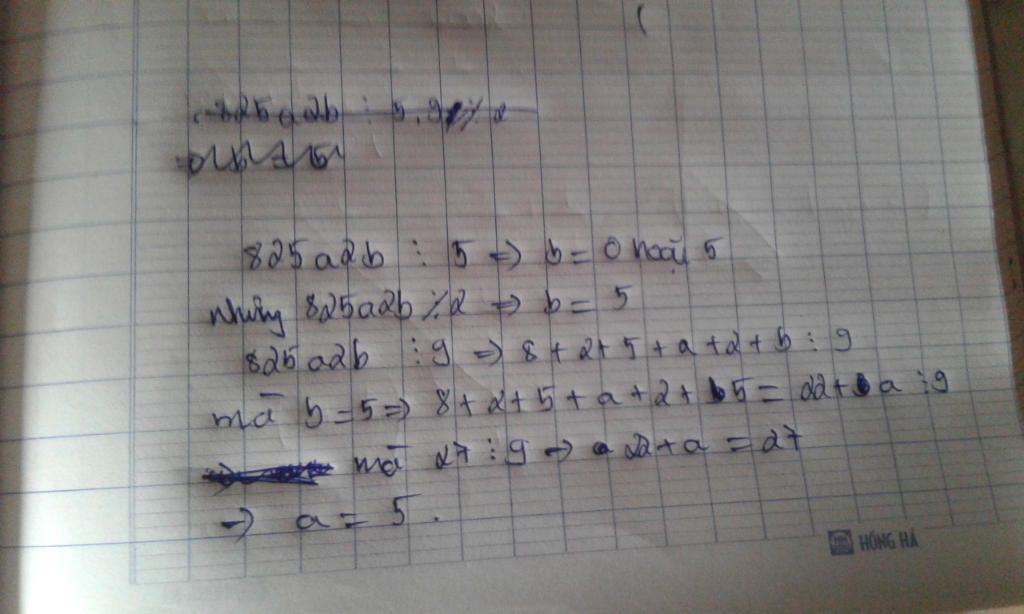 825a2b ⋮ 5, 9, ⋮̸ 2
825a2b ⋮ 5 ⇒ b = 0 hoặc 5
nhưng 825a2b ⋮̸ 2 ⇒ b = 5
825a2b ⋮ 9 ⇒ 8 + 2 + 5 + a + 2 + b ⋮ 9
mà b = 5 ⇒ 8 + 2 + 5 + a + 2 + 5 = 22 + a ⋮ 9
mà 27 ⋮ 9 ⇒ 22 + a = 27
⇒ a = 5.
HH HỒNG HÀ